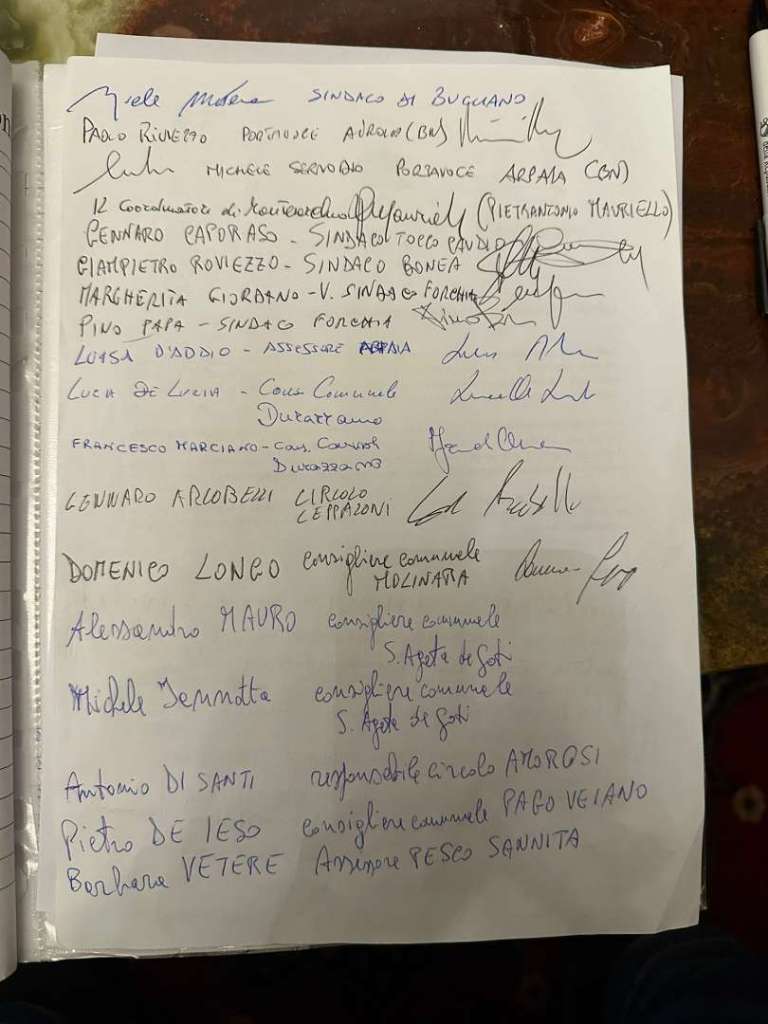 Miele Matera SINDACO DI BUCCIANO
PAOLO RIVIEZZO PORTAVOCE AIROLA (BN)
MICHELE SERVODIO PORTAVOCE ARPAIA (BN)
Il Coordinatore di Montesarchio (PIETRANTONIO MAURIELLO)
GENNARO CAPORASO - SINDACO TOCCO CAUDIO
GIAMPIETRO ROVIEZZO - SINDACO BONEA
MARGHERITA GIORDANO - V. SINDACO FORCHIA
PINO PAPA - SINDACO FORCHIA
LUISA D'ADDIO - ASSESSORE ARPAIA
LUCIA DE LUCIA - Cons Comunale
Durazzano
FRANCESCO MARCIANO - Cons. Comunal
Durazzano
GENNARO ARCOBELLI CIRCOLO
CEPPALONI
DOMENICO LONGO consigliere comunale
MOLINARA
Alessandro MAURO consigliere comunale
S. Agata de Goti
Michele Iannotta consigliere comunale
S. Agata de Goti
Antonio DI SANTI responsabile circolo AMOROSI
Pietro DE IESO consigliere comunale PAGO VEIANO
Barbara VETERE Assessore PESCO SANNITA